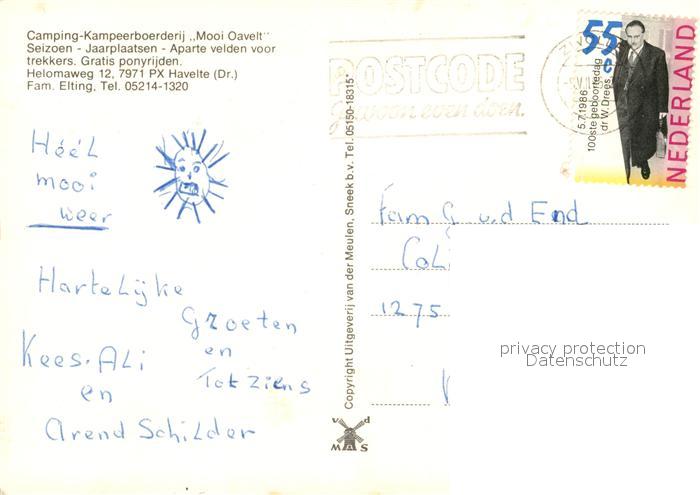 Camping-Kampeerboerderij ,,Mooi Oavelt''
Seizoen - Jaarplaatsen - Aparte velden voor
trekkers. Gratis ponyrijden.
Helomaweg 12, 7971 PX Havelte (Dr.)
Fam. Elting, Tel. 05214-1320
Héél
mooi
weer
Hartelijke
Groeten
en
Tot Ziens
Kees. Ali
en
Arend Schilder
Copyright Uitgeverij van der Meulen, Sneek b.v. Tel. 05150-18315
vd
MAS
POSTCODE
gewoon even doen.
ZWOLLE
55
c
5.7.1986
100ste geboortedag
dr W. Drees
NEDERLAND
Fam G v.d End
1275
privacy protection
Datenschutz